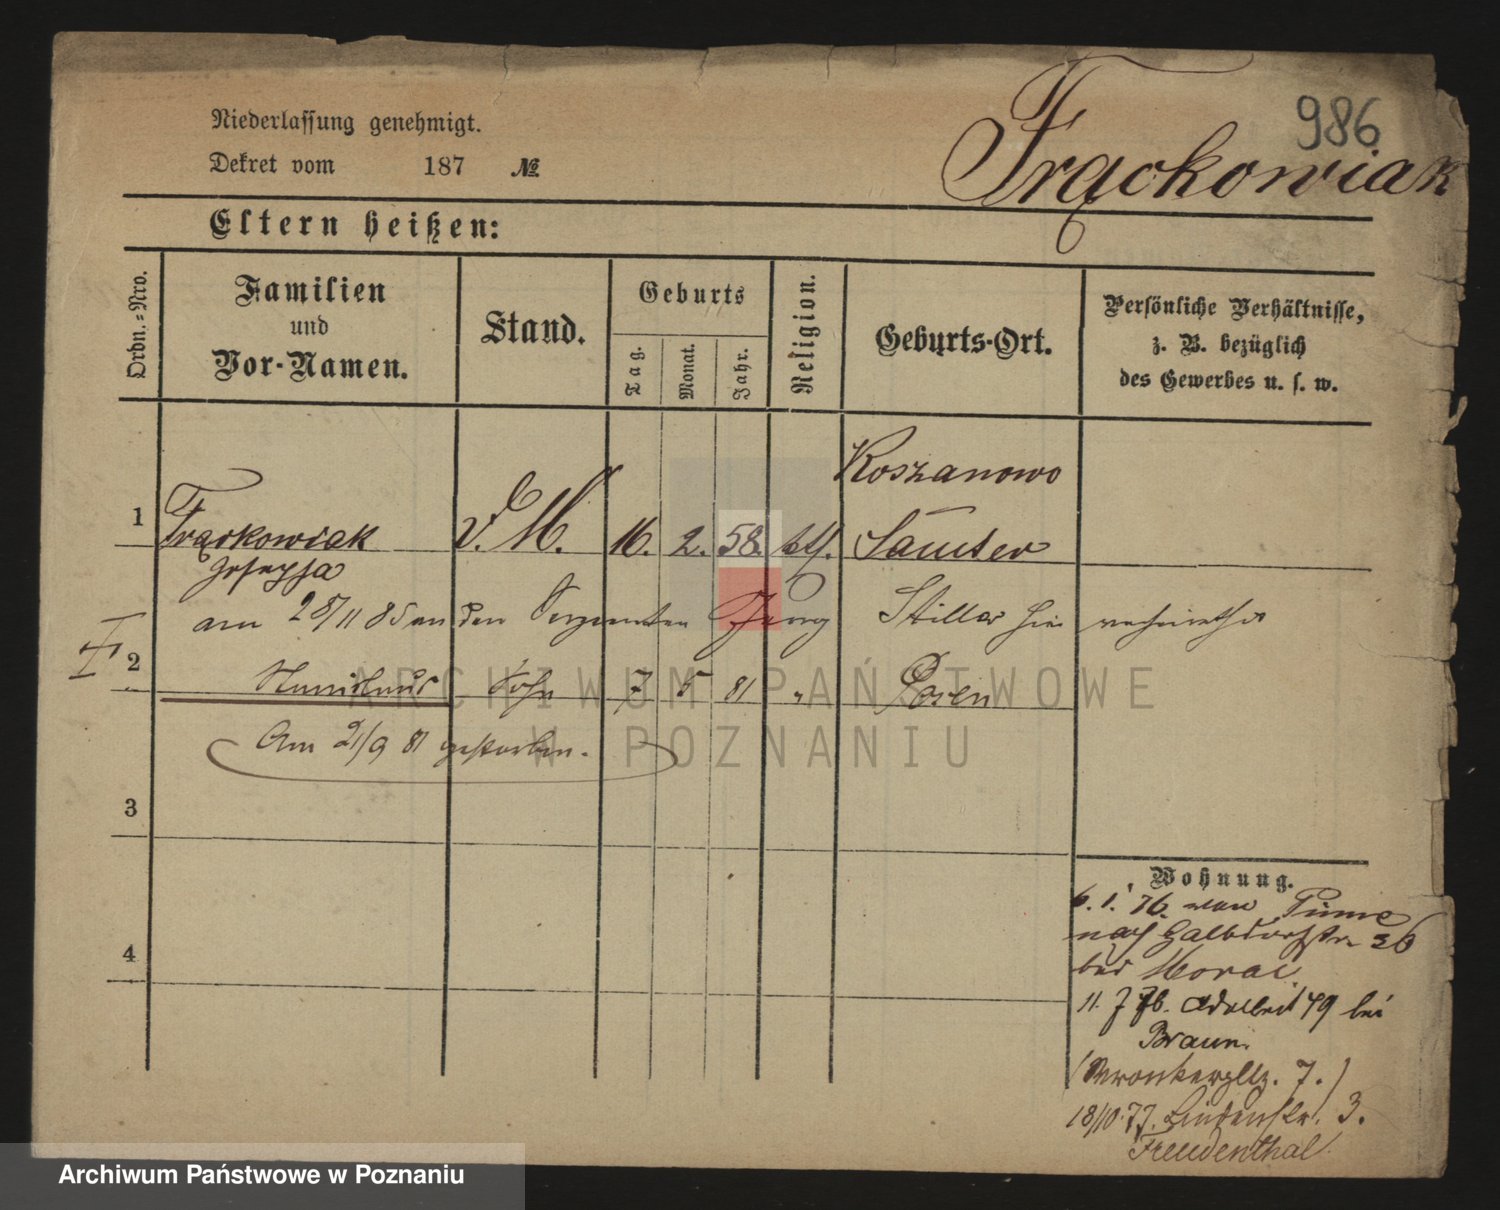 986
Frąckowiak
Niederlassung genehmigt.
Dekret vom 187 №
Eltern heißen:
Ordn.=Nro.
Familien
und
Vor-Namen.
Stand.
Geburts
Tag.
Monat.
Jahr.
Religion.
Geburts-Ort.
Persönliche Verhältnisse,
z. B. bezüglich
des Gewerbes u. s. w.
Koszanowo
1 Frąckowiak D. M. 16. 2. 58. kth. Samter
Josepha
am 28/11 85 an den Sergeanten Georg Stiller hier verheirathet
2 Stanislaus Sohn 7 5 81 " Posen
Am 21/9 81 gestorben.
3
4
Wohnung.
6. 1. 76. von Pinne
nach Halbdorfstr 36
bei
11. 7 76. Adalbert 49 bei
Braun.
(Wronkerplz. 7.)
18/10.77. Lindenstr. 3.
Freudenthal
ARCHIWUM PAŃSTWOWE
W POZNANIU
Archiwum Państwowe w Poznaniu